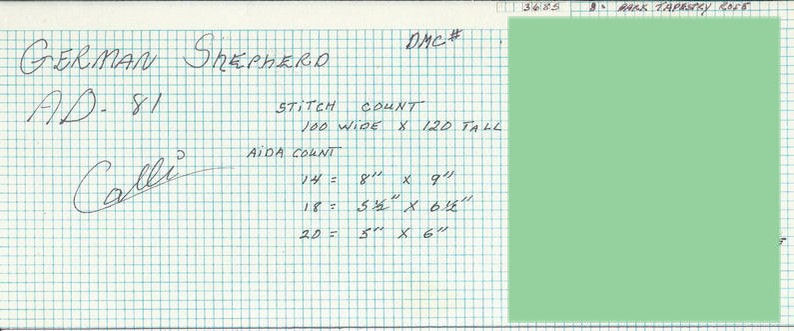 3685 8= DARK TAPESTRY ROSE
GERMAN SHEPHERD DMC#
AD-81
STITCH COUNT
100 WIDE X 120 TALL
Calli
AIDA COUNT
14 = 8" X 9"
18 = 5½" X 6½"
20 = 5" X 6"